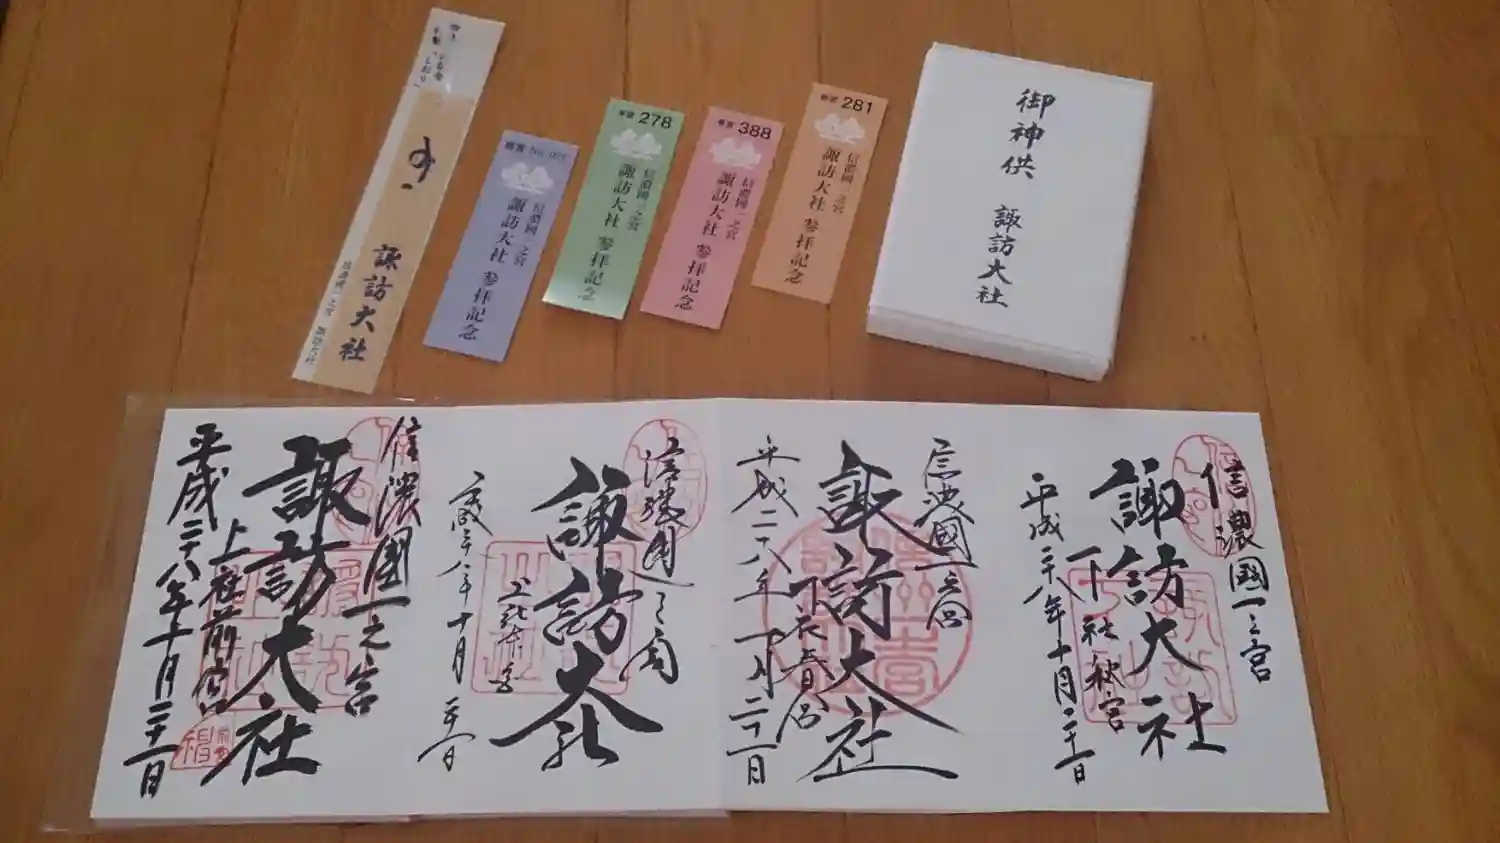 諏訪大社
信濃國一之宮 諏訪大社
信濃國一之宮
諏訪大社 参拝記念
278
信濃國一之宮
諏訪大社 参拝記念
388
信濃國一之宮
諏訪大社 参拝記念
281
信濃國一之宮
諏訪大社 参拝記念
御神供 諏訪大社
信濃國一之宮
諏訪大社
下社秋宮
平成二十八年十月二十二日
信濃國一之宮
諏訪大社
下社春宮
平成二十八年十月二十二日
諏訪大社
信濃國一之宮
諏訪大社
上社前宮
平成二十八年十月二十二日